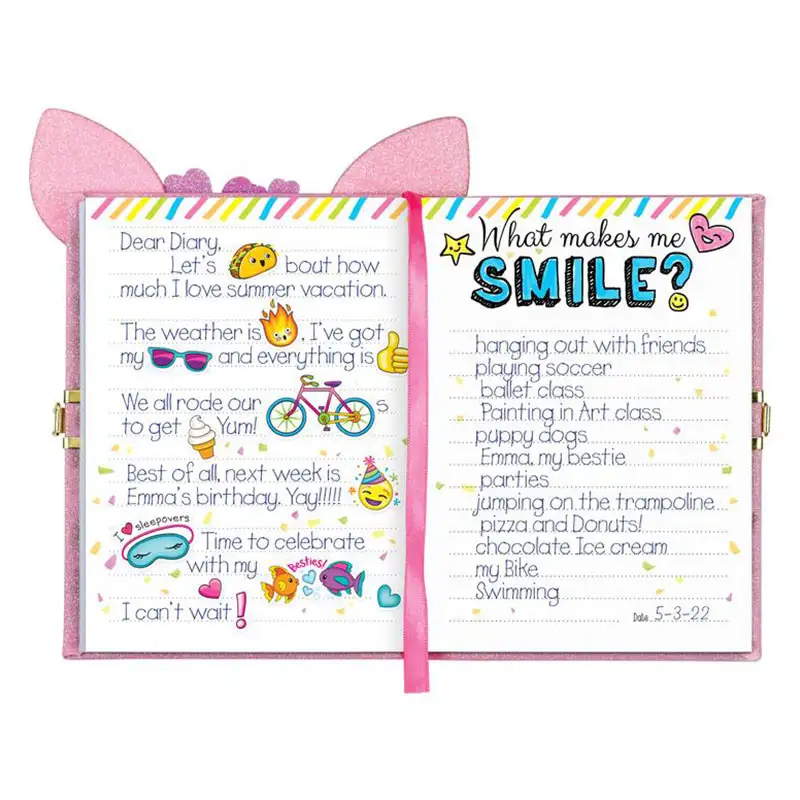 Dear Diary,
Let's bout how
much I love summer vacation.
The weather is , I've got
my and everything is
We all rode our s
to get Yum!
Best of all, next week is
Emma's birthday. Yay!!!!!
I sleepovers
Time to celebrate
with my Besties!
I can't wait!
What makes me
SMILE?
hanging out with friends
playing soccer
ballet class
Painting in Art class
puppy dogs
Emma, my bestie
parties
jumping on the trampoline
pizza and Donuts!
chocolate Ice cream
my Bike
Swimming
Date 5-3-22